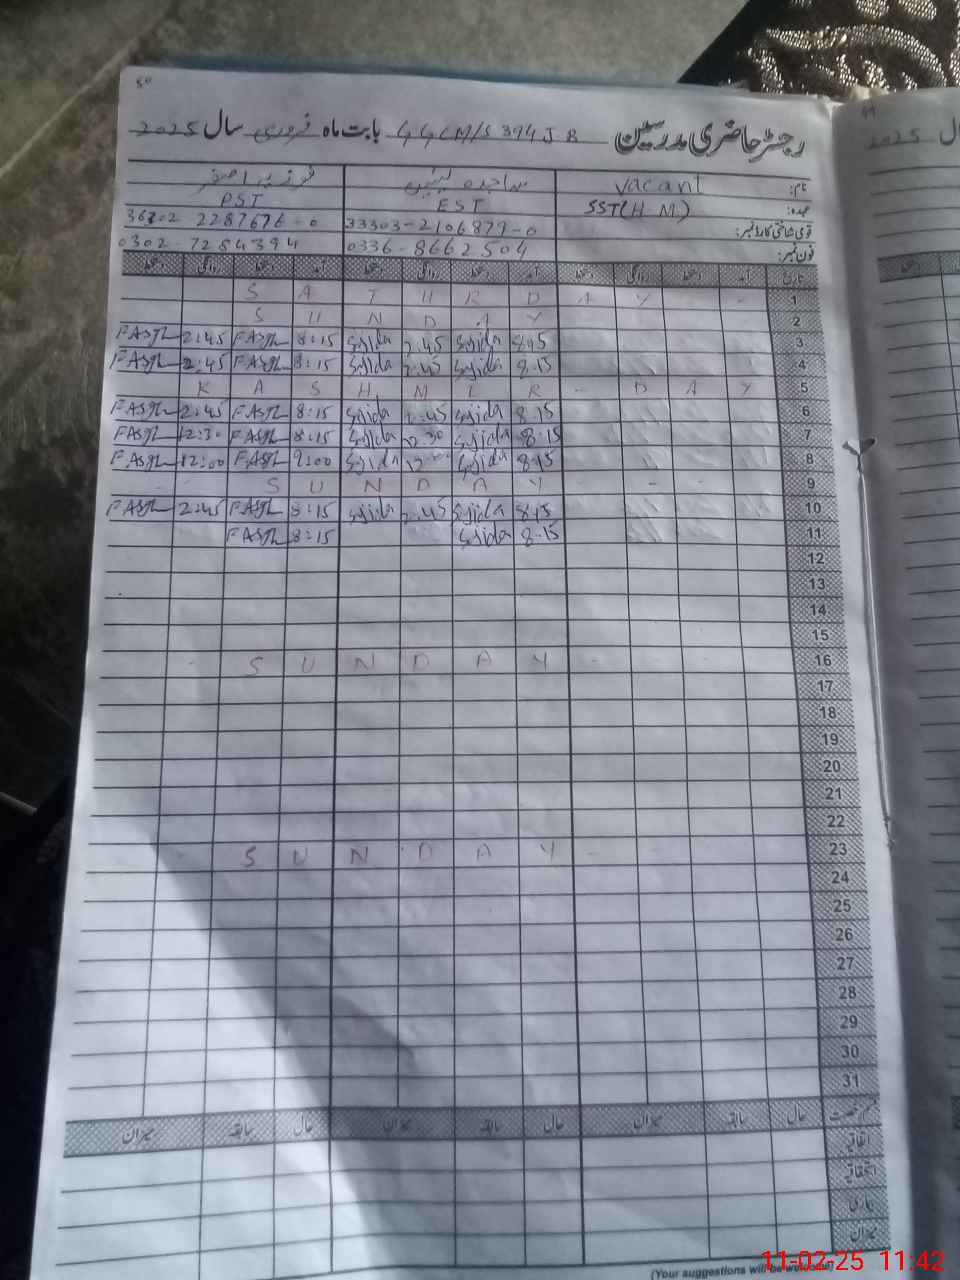 50
رجسٹر حاضری مدرسین GGCM/S 394 J B بابت ماہ فروری سال 2025
نام: vacant ساجدہ فوزیہ اصغر
عہدہ: SST(H.M.) EST PST
قومی شناختی کارڈ نمبر: 33303-2106879-0 2287676-0
فون نمبر: 0336-8662504 0302-7284394
تاریخ آمد دستخط روانگی دستخط آمد دستخط روانگی دستخط آمد دستخط روانگی دستخط
S A T U R D A Y - 1
S U N D A Y 2
2:45 8:15 Sajida 2:45 Sajida 8:15 3
2:45 8:15 Sajida 2:45 Sajida 8:15 4
K A S H M I R - D A Y 5
2:45 8:15 Sajida 2:45 Sajida 8:15 6
12:30 8:15 Sajida 12:30 Sajida 8:15 7
12:00 9:00 Sajida 12:00 Sajida 8:15 8
S U N D A Y 9
2:45 8:15 Sajida 2:45 Sajida 8:15 10
8:15 Sajida 8:15 11
12
13
14
15
- S U N D A Y - 16
17
18
19
20
21
22
S U N D A Y - 23
24
25
26
27
28
29
30
31
قسم رخصت حال سابقہ میزان حال سابقہ میزان حال سابقہ میزان
اتفاقیہ
استحقاقیہ
بیماری
میزان
(Your suggestions will be
11-02-25 11:42